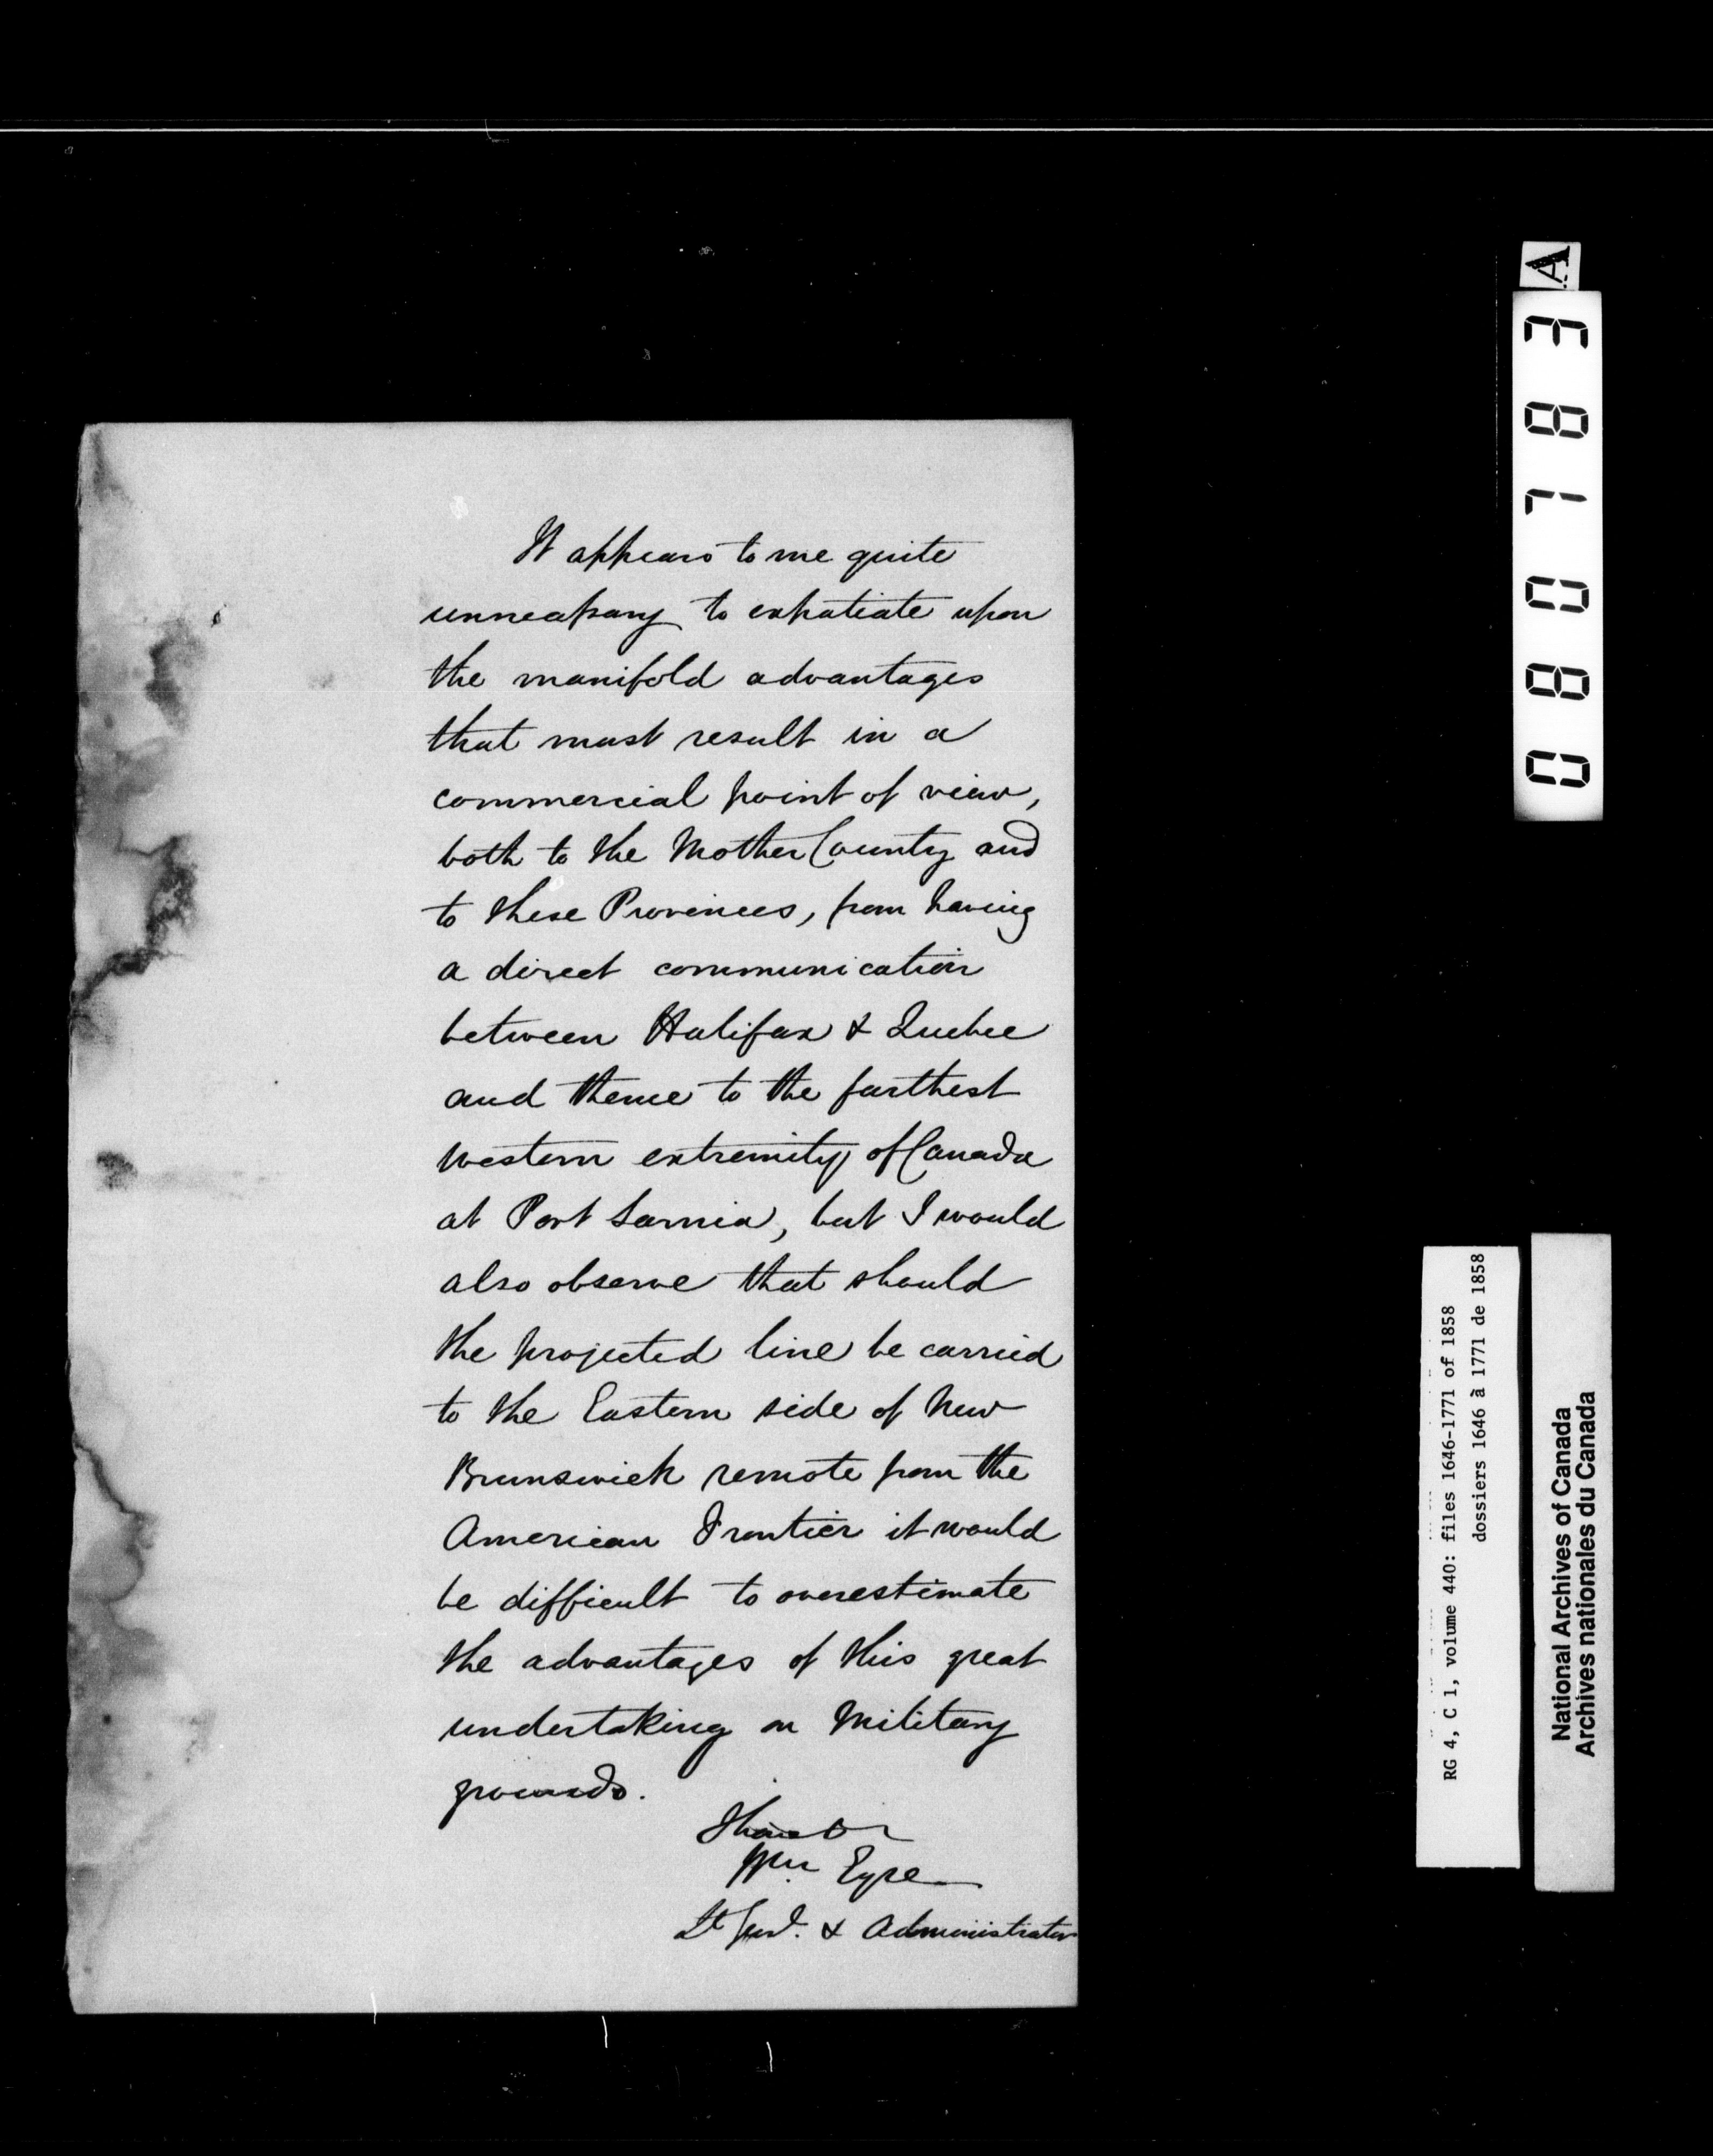 It appears to me quite
unnecessary to expatiate upon
the manifold advantages
that must result in a
commercial point of view,
both to the Mother Country and
to these Provinces, from having
a direct communication
between Halifax & Quebec
and thence to the farthest
western extremity of Canada
at Port Sarnia, but I would
also observe that should
the projected line be carried
to the Eastern side of New
Brunswick remote from the
American Frontier it would
be difficult to overestimate
the advantages of this great
undertaking on Military
grounds.
I have &c
Wm Eyre
Lt Genl. & Administrator
A
080783
RG 4, C 1, volume 440: files 1646-1771 of 1858
dossiers 1646 à 1771 de 1858
National Archives of Canada
Archives nationales du Canada